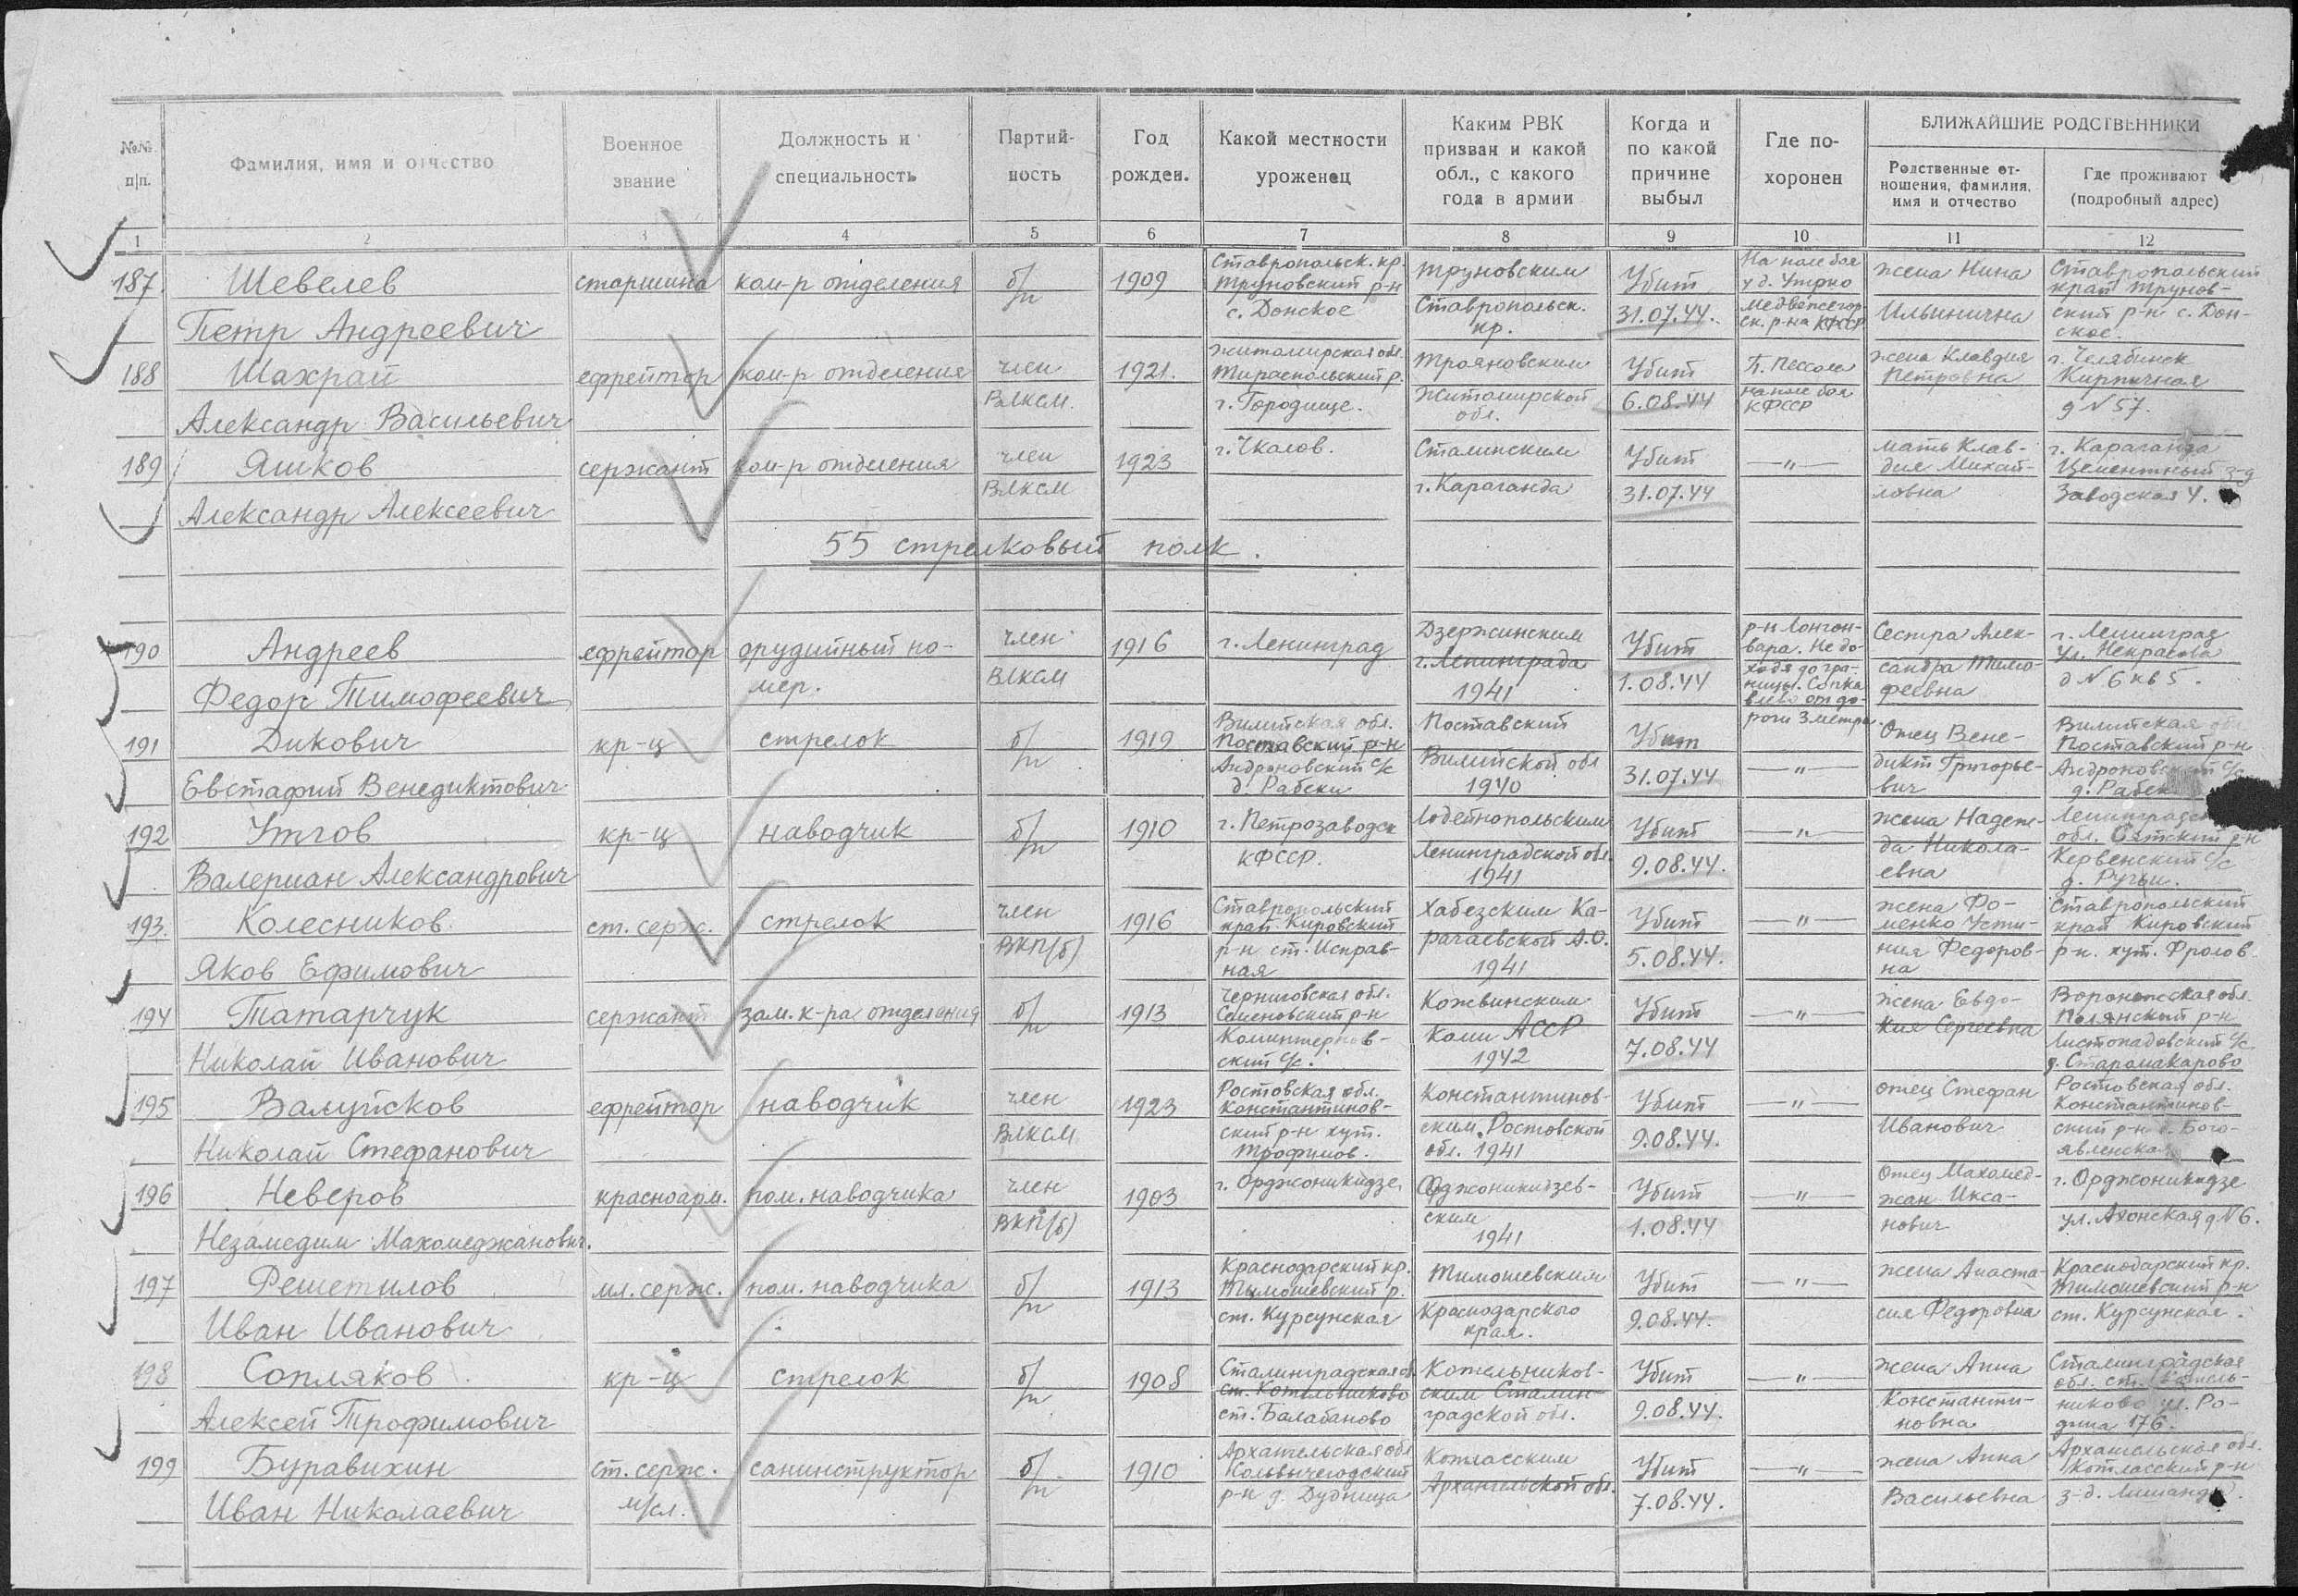 №№ п|п.
Фамилия, имя и отчество
Военное звание
Должность и специальность
Партийность
Год рожден.
Какой местности уроженец
Каким РВК призван и какой обл., с какого года в армии
Когда и по какой причине выбыл
Где похоронен
БЛИЖАЙШИЕ РОДСТВЕННИКИ
Родственные отношения, фамилия, имя и отчество
Где проживают (подробный адрес)
1 2 3 4 5 6 7 8 9 10 11 12
187. Шевелев Петр Андреевич
старшина
ком-р отделения
б/п
1909
Ставропольск. кр. Труновский р-н с. Донское
Труновским Ставропольск. кр.
Убит 31.07.44.
На поле боя у д. Медвежегорск. р-на КФССР
жена Нина Ильинична
Ставропольский край Труновский р-н с. Донское.
188 Шахрай Александр Васильевич
ефрейтор
ком-р отделения
член ВЛКСМ.
1921.
Житомирская обл. р. г. Городище.
Трояновским Житомирской обл.
Убит 6.08.44
на поле боя КФССР
жена Клавдия Петровна
г. Челябинск Кирпичная д N 57.
189 Яшков Александр Алексеевич
сержант
ком-р отделения
член ВЛКСМ
1923
г. Чкалов.
Сталинским г. Караганда
Убит 31.07.44
—"—
мать Клавдия Михайловна
г. Караганда Цементный з-д Заводская 4.
55 стрелковый полк.
190 Андреев Федор Тимофеевич
ефрейтор
орудийный номер.
член ВЛКСМ
1916
г. Ленинград
Дзержинским г. Ленинграда 1941
Убит 1.08.44
р-н Лонгонвара. Не доходя до границы. Сопка влево от дороги 3 метра.
Сестра Александра Тимофеевна
г. Ленинград ул. Некрасова д N 6 кв 5.
191 Дикович Евстафий Венедиктович
кр-ц
стрелок
б/п
1919
Вилейская обл. Поставский р-н Андроновский с/с д. Рабеки
Поставский Вилейской обл 1940
Убит 31.07.44
—"—
Отец Венедикт Григорьевич
Вилейская обл Поставский р-н Андроновский с/с д.
192 Утгов Валериан Александрович
кр-ц
наводчик
б/п
1910
г. Петрозаводск КФССР.
Лодейнопольским Ленинградской обл. 1941
Убит 9.08.44.
—"—
жена Надежда Николаевна
обл. р-н с/с д. Ручьи.
193. Колесников Яков Ефимович
ст. серж.
стрелок
член ВКП(б)
1916
Ставропольский край Кировский р-н ст. Исправная
Хабезским Карачаевской А.О. 1941
Убит 5.08.44.
—"—
жена Фоменко Устиния Федоровна
Ставропольский край Кировский р-н. хут. Фролов.
194 Татарчук Николай Иванович
сержант
зам. к-ра отделения
б/п
1913
Черниговская обл. Семеновский р-н Коминтерновский с/с.
Кожвинским Коми АССР 1942
Убит 7.08.44
—"—
жена Евдокия Сергеевна
Воронежская обл. Полянский р-н Листопадовский с/с. д. Старомакарово
195 Валуйсков Николай Стефанович
ефрейтор
наводчик
член ВЛКСМ
1923
Ростовская обл. Константиновский р-н хут. Трофимов.
Константиновским Ростовской обл. 1941
Убит 9.08.44.
—"—
отец Стефан Иванович
Ростовская обл. Константиновский р-н Богоявленская
196 Неверов Незамедим Махомеджанович.
красноарм.
пом. наводчика
член ВКП(б)
1903
г. Орджоникидзе
Орджоникидзевским 1941
Убит 1.08.44
—"—
Отец Махомеджан
г. Орджоникидзе ул. д N 6.
197 Решетилов Иван Иванович
мл. серж.
пом. наводчика
б/п
1913
Краснодарский кр. Тимошевский р. ст. Курсунская
Тимошевским Краснодарского края.
Убит 9.08.44.
—"—
жена Анастасия Федоровна
Краснодарский кр. Тимошевский р-н ст. Курсунская.
198 Сопляков Алексей Трофимович
кр-ц
стрелок
б/п
1908
Сталинградская об ст. Котельниково ст. Балабаново
Котельниковским Сталинградской обл.
Убит 9.08.44.
—"—
жена Анна Константиновна
Сталинградская обл. ст. Котельниково ул. Родина 176.
199 Буравихин Иван Николаевич
ст. серж. м/сл.
санинструктор
б/п
1910
Архангельская обл р-н д. Дудница
Котласским Архангельской обл.
Убит 7.08.44.
—"—
жена Анна Васильевна
Архангельская обл. Котласский р-н